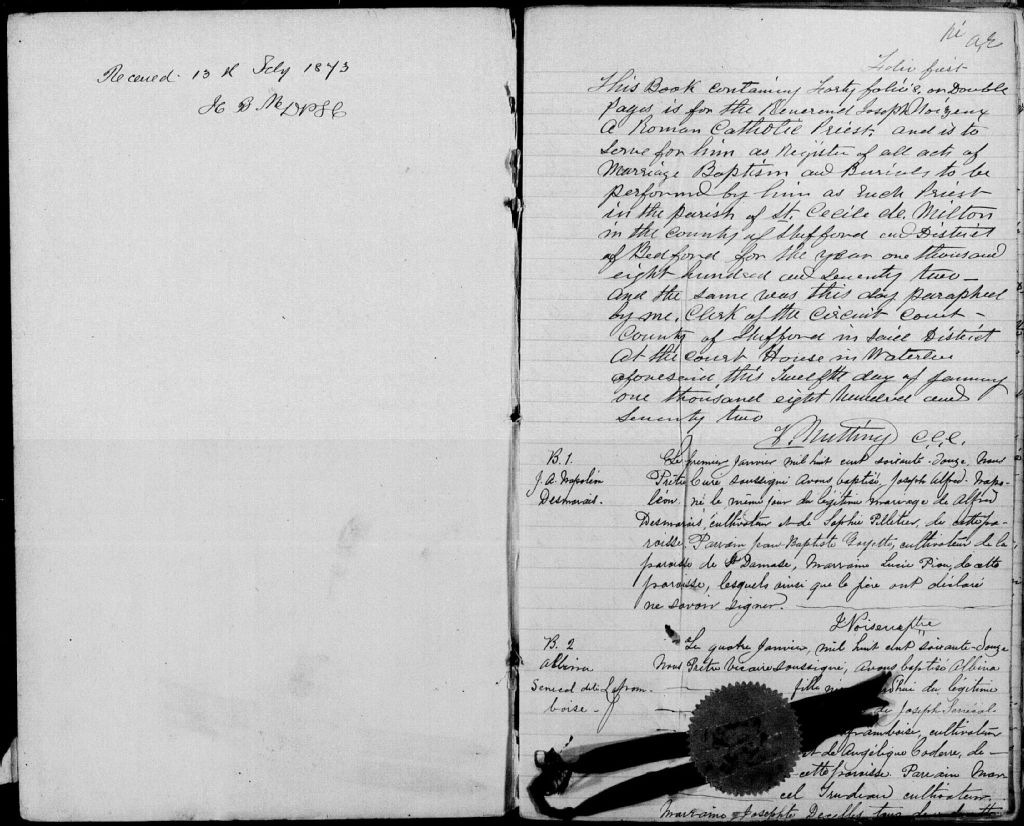 Received 13th Feby 1873
Folio first
This Book containing Forty folios, or Double
Pages is for the Reverend Joseph Noizeux
A Roman Catholic Priest, and is to
Serve for him as Register of all acts of
Marriage Baptism and Burials to be
performed by him as Such Priest
in the parish of St. Cecile de Milton
in the County of Shefford and District
of Bedford for the year one thousand
eight hundred and Seventy two —
and the same was this day paraphed
by me, Clerk of the Circuit Court —
County of Shefford in said District
At the Court House in Waterloo
aforesaid this Twelfth day of January
one thousand eight hundred and
Seventy two
Nutting C.C.C.
B. 1.
J. A. Napoléon
Desmarais.
Le premier Janvier mil huit cent soixante-douze, Nous
Prêtre Curé soussigné avons baptisé, Joseph Alfred-Napo-
léon né le même jour du légitime mariage de Alfred
Desmarais, cultivateur et de Sophie Pelletier, de cette pa-
roisse. Parrain Jean Baptiste cultivateur de la
paroisse de St Damase, Marraine Lucie de cette
paroisse, lesquels ainsi que le père ont déclaré
ne savoir signer.
J Noiseux ptre
B. 2
Albina
Senecal dit Lafram-
boise -
Le quatre Janvier, mil huit cent soixante-douze
Nous Prêtre vicaire soussigné, avons baptisé Albina
fille d'hui du légitime
de Joseph Senécal
framboise, cultivateur
et de Angélique Coderre, de
cette paroisse. Parrain Mar
cel Trudeau cultivateur,
Marraine Josephte Decelles tous de cette